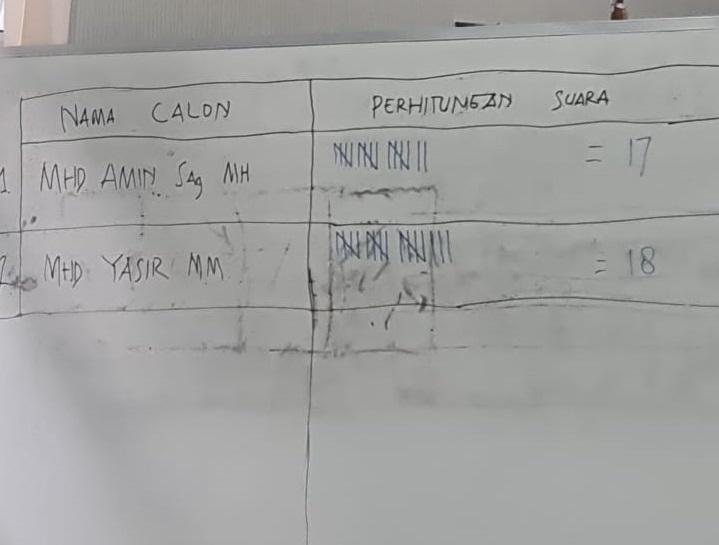 NAMA CALON PERHITUNGAN SUARA
1 MHD AMIN SAg MH = 17
2 MHD YASIR MM = 18